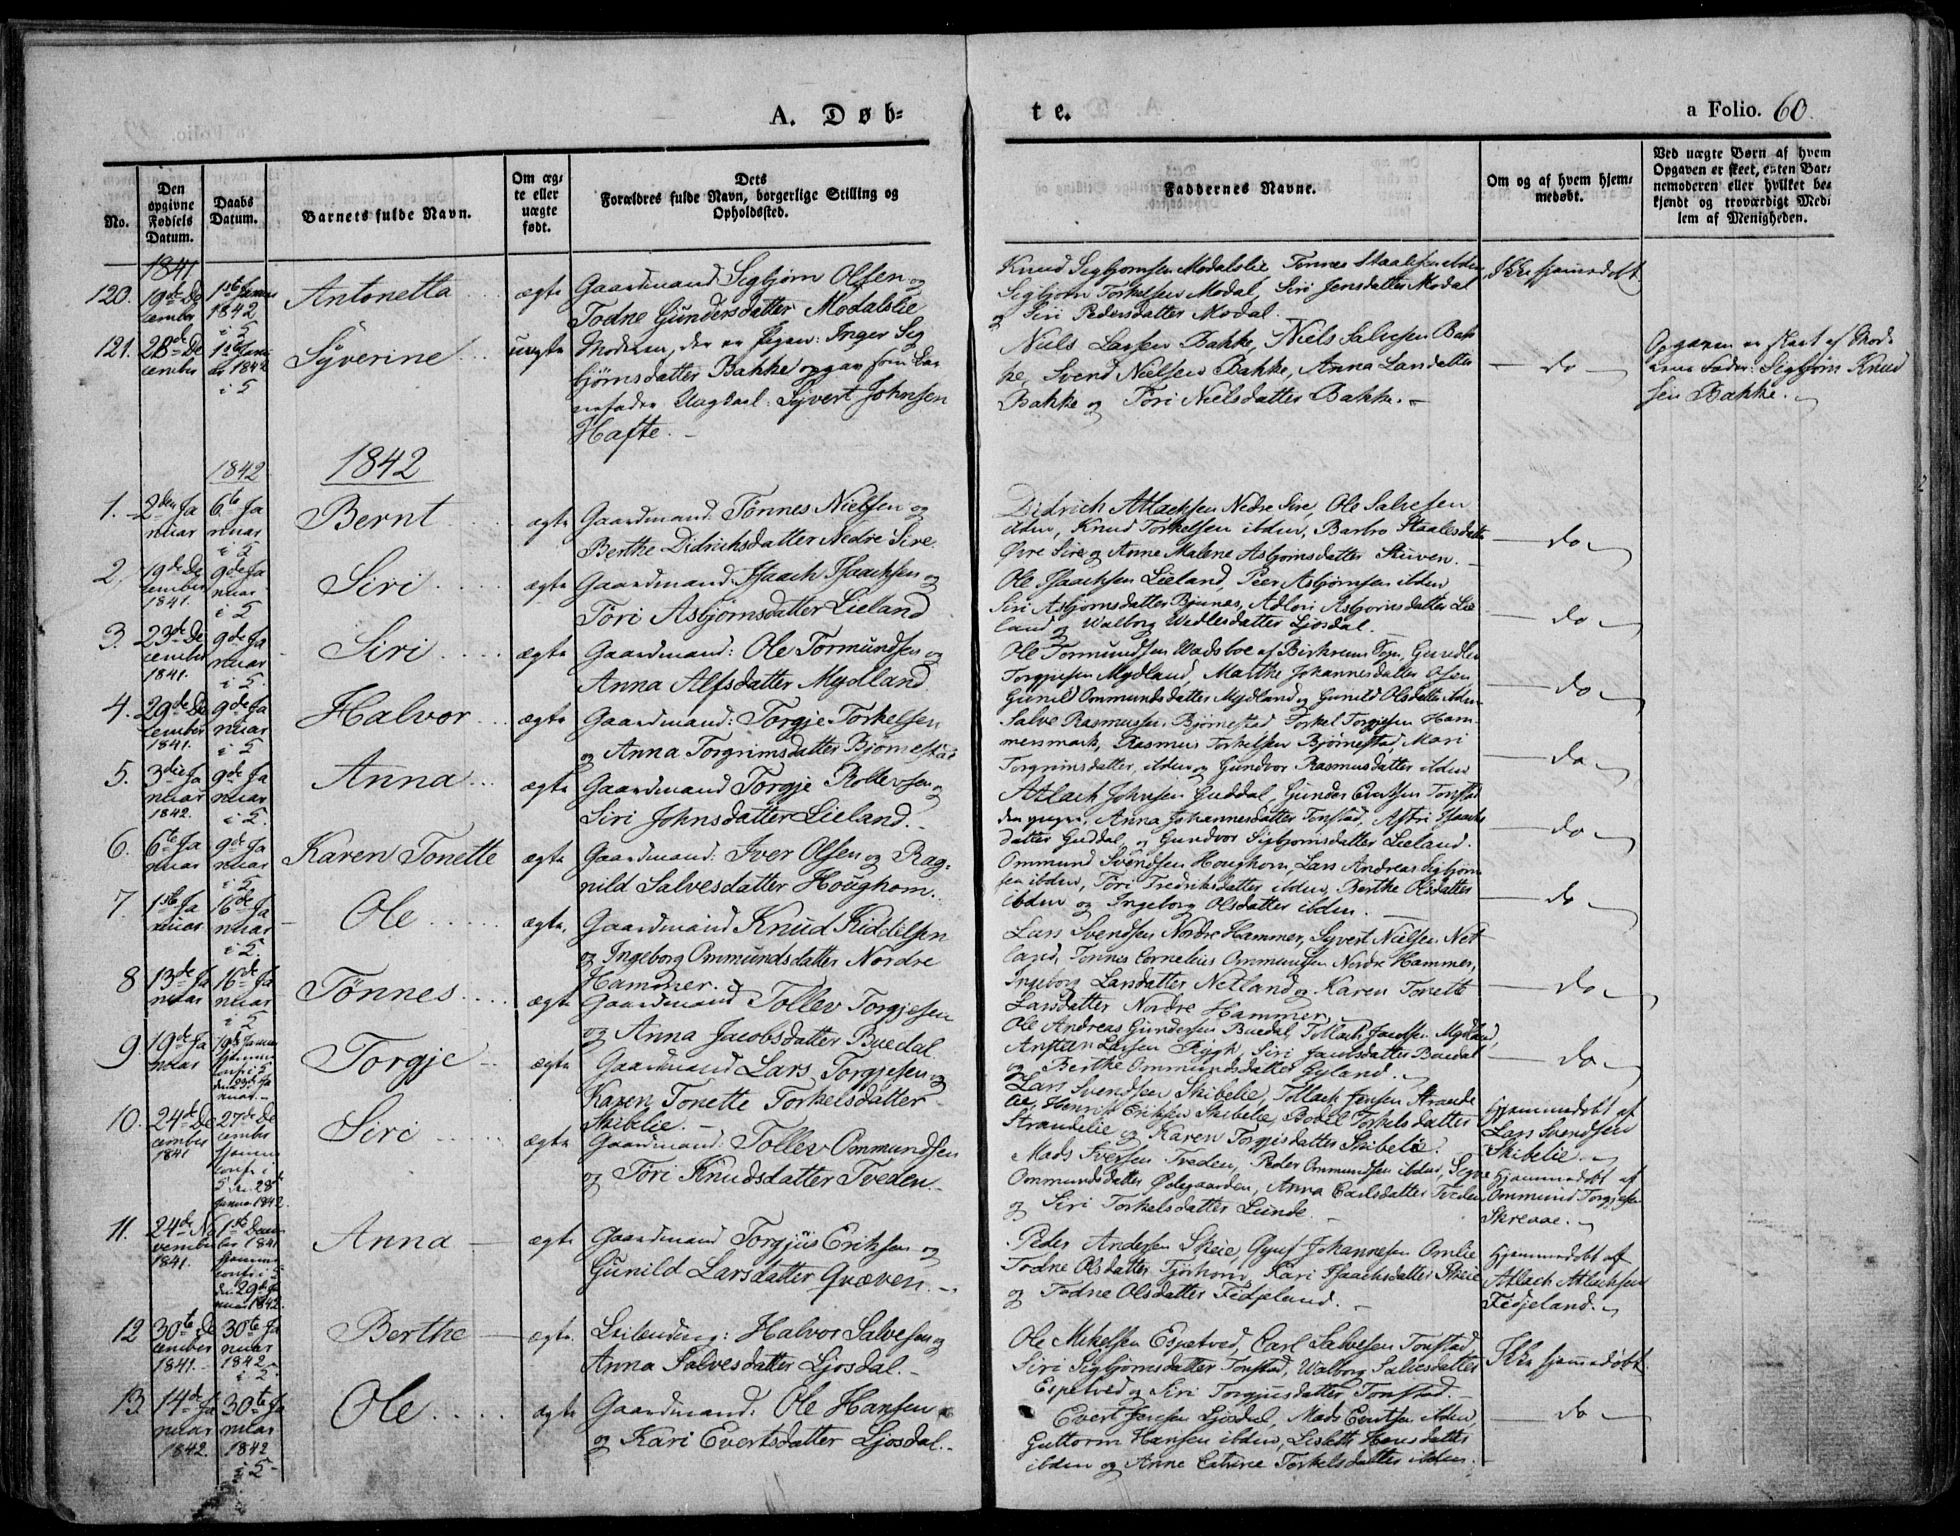 A. Døb-
te.
a Folio. 60.
No.
Den opgivne Fødsels Datum.
Daabs Datum.
Barnets fulde Navn.
Om ægte eller uægte født.
Dets Forældres fulde Navn, borgerlige Stilling og Opholdssted.
Faddernes Navne.
Om og af hvem hjemmedøbt.
Ved uægte Børn af hvem Opgaven er skeet, enten Barnemoderen eller hvilket bekjendt og troværdigt Medlem af Menigheden.
1841
120. 19de December
1ste Januar 1842 i 5
Antonetta
ægte
Gaardmand Segbjørn Olsen og
Todne Gundersdatter Modalslie
Knud Segbjørnsen Modalslie, Tønnes Staalesen ibden
Segbjørn Torkelsen Modal, Siri Jensdatter Modal
og Siri Pedersdatter Modal.
Ikke hjemmedøbt
121. 28de December
1ste Januar 1842 i 5
Syverine
uægte
Moderen, der er Pigen: Inger Seg
bjørnsdatter Bakke opgav som Bar
nefader Ungkarl: Syvert Johnsen
Hafte.
Niels Larsen Bakke, Niels Salvesen Bak
ke, Svend Nielsen Bakke, Anna Larsdatter
Bakke og Tori Nielsdatter Bakke.
do
Opgaven er skeet af Mode
rens Fader: Segbjørn Knud
sen Bakke.
1842
1842
1. 2den Januar
6te Januar i 5
Bernt
ægte
Gaardmand: Tønnes Nielsen og
Berthe Didrichsdatter Nedre Sire.
Didrich Atlachsen Nedre Sire, Ole Salvesen
ibden, Knud Torkelsen ibden, Barbro Staalesdatter
Øvre Sire og Anne Malene Asbjørnsdatter Stuven.
do
2. 19de December 1841.
9de Januar i 5
Siri
ægte
Gaardmand: Isaach Isaachsen og
Tori Asbjørnsdatter Lieland
Ole Isaachsen Lieland, Peer Asbjørnsen ibden
Siri Asbjørnsdatter Bjunes, Adlori Asbjørnsdatter Lie
land og Walborg Wedlesdatter Ljosdal.
do
3. 23de December 1841.
9de Januar i 5.
Siri
ægte
Gaardmand: Ole Tormundsen og
Anna Alfsdatter Mydland
Ole Tormundsen Wadsboe af Birkrems Sogn, Gundle
Torgjesen Mydland, Marthe Johannesdatter Osen,
Gunild Ommundsdatter Mydland og Gunild Olsdatter ibden
do
4. 29de December 1841.
9de Januar i 5
Halvor
ægte
Gaardmand: Torgje Torkelsen
og Anna Torgrimsdatter Bjørnestad
Salve Rasmussen Bjørnestad Torkel Torgjesen Ham
mersmark, Rasmus Torkelsen Bjørnestad, Mari
Torgrimsdatter, ibden og Gundvor Rasmusdatter ibden
do
5. 3die Januar 1842.
9de Januar i 5.
Anna
ægte
Gaardmand Torgje Rollefsen og
Siri Johnsdatter Lieland.
Atlach Johnsen Guddal, Gunder Evertsen Tonstad
den yngre, Anna Johannesdatter Tonstad, Astri Isaachs
datter Guddal og Gundvor Segbjørnsdatter Lieland.
do
6. 6te Januar
9de Januar i 5
Karen Tonette
ægte
Gaardmand: Iver Olsen og Rag
nild Salvesdatter Houghom.
Ommund Svendsen Houghom, Lars Andreas Segbjørn
sen ibden, Tori Fredriksdatter ibden, Berthe Olsdatter
ibden og Ingeborg Olsdatter ibden.
do
7. 1ste Januar
16de Januar i 5.
Ole
ægte.
Gaardmand Knud Kiddelsen
og Ingeborg Ommundsdatter Nordre
Hammer.
Lars Svendsen Nordre Hammer, Syvert Nielsen Net
land, Tønnes Cornelius Ommundsen Nordre Hammer,
Ingeborg Larsdatter Netland og Karen Tonette
Larsdatter Nordre Hammer.
do
8 13de Januar
16de Januar i 5
Tønnes
ægte
Gaardmand Tollev Torgjesen
og Anna Jacobsdatter Buedal.
Ole Andreas Gundersen Buedal, Tollach Jacobsen Mydland,
Ansteen Larsen Rygh, Siri Jacobsdatter Buedal
og Berthe Ommundsdatter Gyland.
do
9. 19de Januar
19de Januar hjemme
Torgje
ægte
Gaardmand Lars Torgjesen og
Karen Tonette Torkelsdatter
Skibelie.
Lars Svendsen Skibelie, Tollach Jensen Strande
lie, Henrik Eriksen Skibelie, Bodel Torkelsdatter
Strandelie og Karen Torgjesdatter Skibelie.
Hjemmedøbt af
Lars Svendsen
Skibelie.
10. 24de December 1841
27de December hjemme
conf. i
5 den 28de
Januar 1842.
Siri
ægte
Gaardmand: Tollev Ommundsen
og Tori Knudsdatter Tveden.
Mads Iversen Tveden, Peder Ommundsen ibden, Segne
Ommundsdatter Ødegaarden, Anna Carlsdatter Tveden
og Siri Torkelsdatter Lunde.
Hjemmedøbt af
Ommund Torgjesen
Skreaae.
11. 24de November 1841.
1ste December 1841 hjemme
conf. i 5
den 29de Januar 1842.
Anna
ægte
Gaardmand Torgjus Eriksen og
Gunild Larsdatter Qvæven.
Peder Andersen Skeie, Gjuf Johannesen Omlie
Todne Olsdatter Tjørhom, Kari Isaachsdatter Skeie
og Todne Olsdatter Fedjeland.
Hjemmedøbt af
Atlach Atlachsen
Fedjeland.
12 30te December 1841.
30te Januar 1842. i 2.
Berthe
ægte.
Leilending: Halvor Salvesen og
Anna Salvesdatter Ljosdal.
Ole Mikelsen Espetved, Carl Salvesen Tonstad,
Siri Segbjørnsdatter Tonstad, Walborg Salvesdatter
Espetved og Siri Torgjusdatter Tonstad.
Ikke hjemmedøbt.
13. 14de Januar 1842.
30te Januar 1842 i 5
Ole
ægte
Gaardmand: Ole Hansen
og Kari Evertsdatter Ljosdal.
Evert Jensen Ljosdal, Mads Evertsen ibden,
Guttorm Hansen ibden, Lisbeth Hansdatter
ibden og Anne Catrine Torkelsdatter ibden.
do